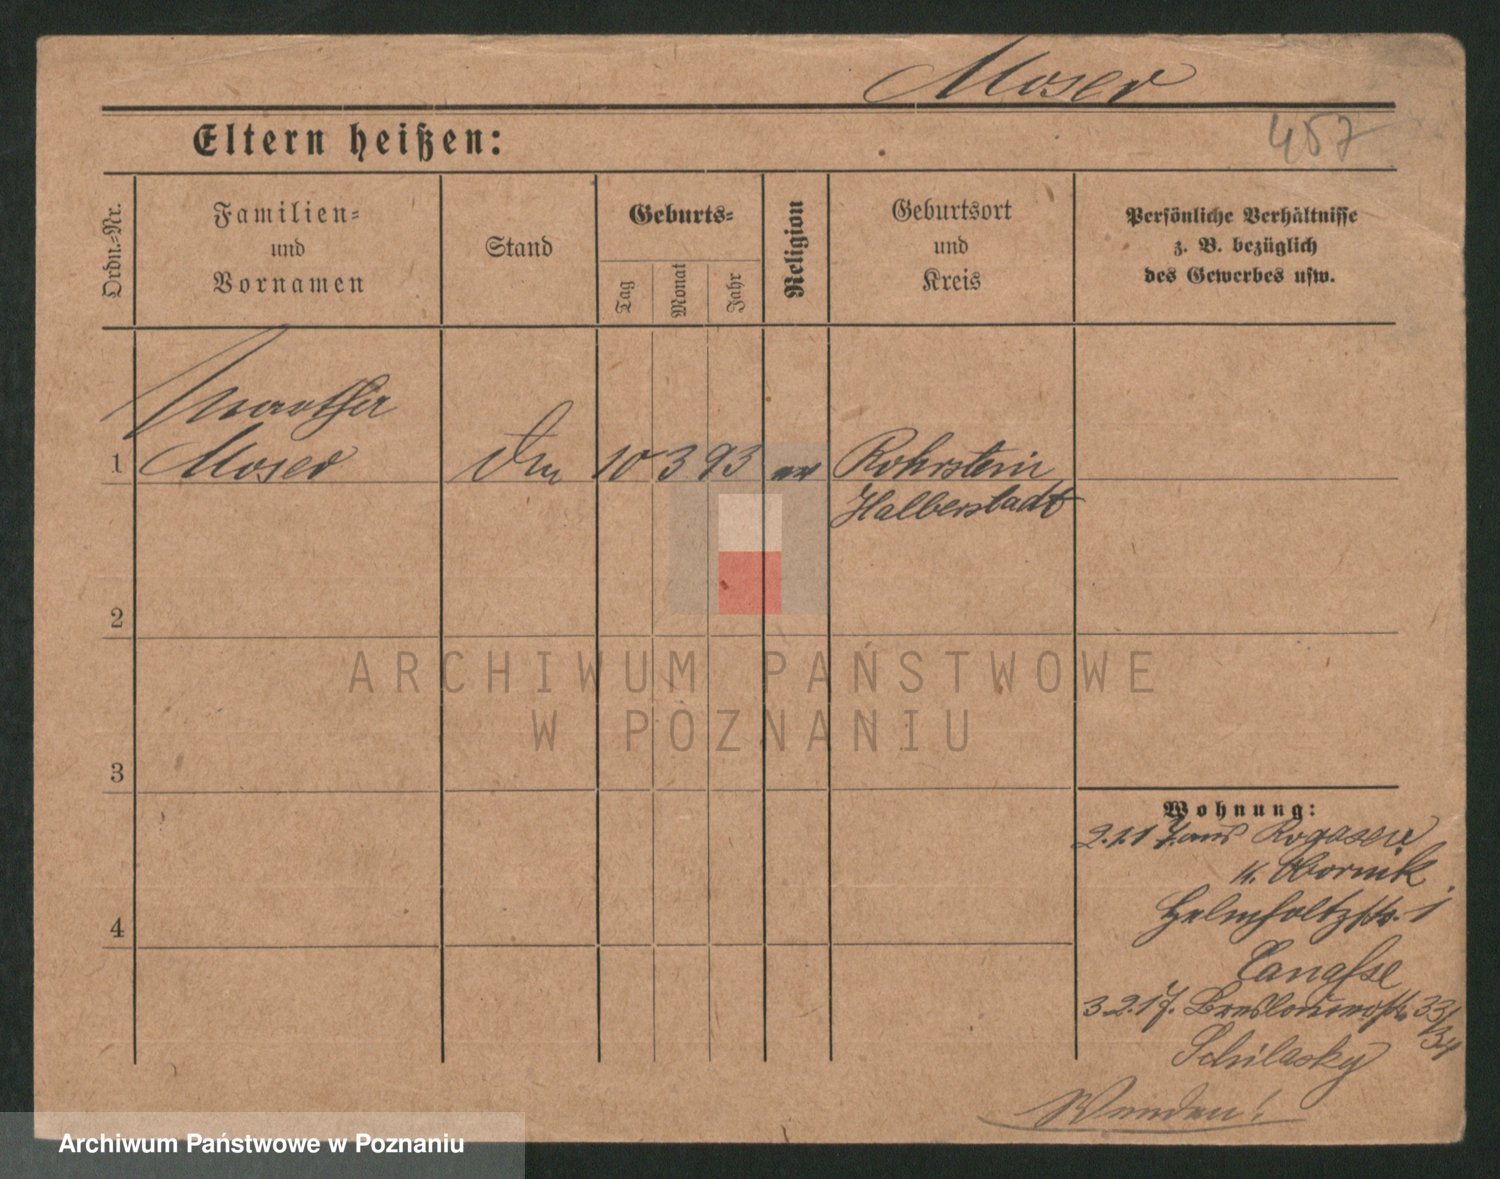 Moser
457
Eltern heißen:
Ordn.-Nr.
Familien-
und
Vornamen
Stand
Geburts-
Tag
Monat
Jahr
Religion
Geburtsort
und
Kreis
Persönliche Verhältnisse
z. B. bezüglich
des Gewerbes usw.
Martha
1 Moser 10 3 93 ev Rohrstein
Halberstadt
2
3
4
Wohnung:
2.1.17 aus Rogasen
K. Obornik
Helmholtzstr. 1
Langhse
3.2.17. Breslauerstr. 33/
34
Schilasky
Wenden!
ARCHIWUM PAŃSTWOWE
W POZNANIU
Archiwum Państwowe w Poznaniu